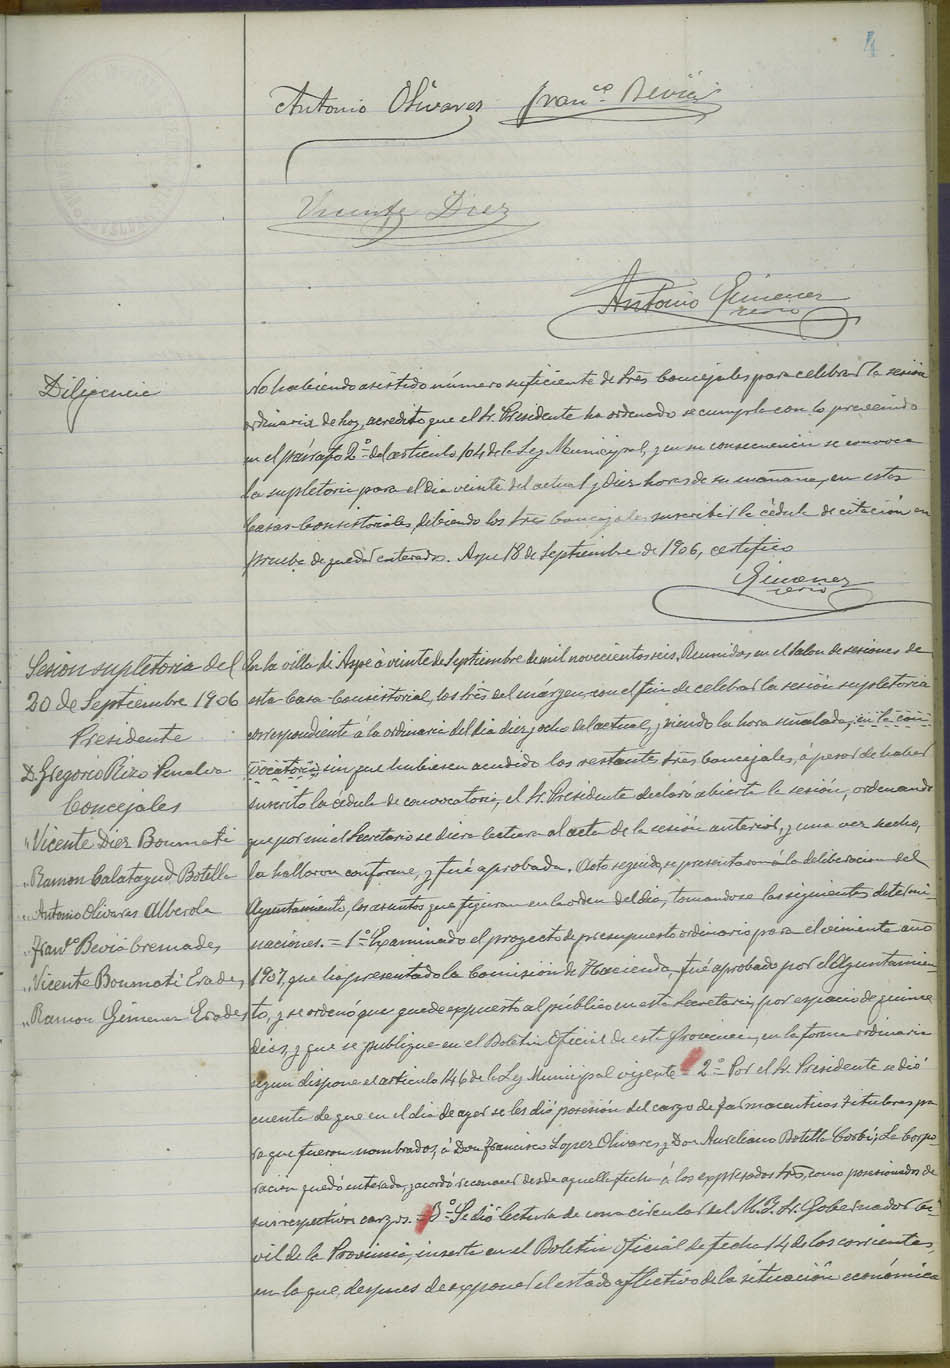 4
Antonio Olivares Fran.co Beviá
Vicente Diez
Antonio Gimenez
srerio
Diligencia
No habiendo asistido número suficiente de Sres Concejales para celebrar la sesión
ordinaria de hoy, acredito que el Sr. Presidente ha ordenado se cumpla con lo prevenido
en el párrafo 2º del artículo 104 de la Ley Municipal, y en su consecuencia se convoca
la supletoria para el dia veinte del actual y diez horas de su mañana, en estas
Casas Consistoriales, debiendo los Sres Concejales suscribir la cédula de citación en
prueba de quedar enterados. Aspe 18 de Septiembre de 1906, certifico
Gimenez
srerio
Sesion supletoria del
20 de Septiembre 1906
Presidente
D. Gregorio Rizo Penalva
Concejales
" Vicente Diez Boumati
" Ramon Calatayud Botella
" Antonio Olivares Alberola
" Franco Beviá Cremades
" Vicente Boumati Erades
" Ramon Gimenez Erades
En la villa de Aspe á veinte de Septiembre de mil novecientos seis. Reunidos en el Salon de sesiones de
esta Casa Consistorial, los Sres del márgen, con el fin de celebrar la sesión supletoria
correspondiente á la ordinaria del dia diez y ocho del actual, y siendo la hora señalada, en la con
vocatoria sin que hubiesen acudido los restantes Sres Concejales, á pesar de haber
suscrito la cédula de convocatoria, el Sr. Presidente declaró abierta la sesión, ordenando
que por mi el Secretario se diera lectura al acta de la sesión anterior, y una vez hecho,
la hallaron conforme, y fué aprobada. Acto seguido, se presentaron á la deliberacion del
Ayuntamiento, los asuntos que figuran en la orden del dia, tomandose las siguientes determi-
naciones. = 1º Examinado el proyecto de presupuesto ordinario para el viniente año
1907, que ha presentado la Comisión de Hacienda, fué aprobado por el Ayuntamien-
to, y se ordenó que quede expuesto al público en esta Secretaria, por espacio de quince
dias, y que se publique en el Boletin Oficial de esta Provincia, en la forma ordinaria
segun dispone el articulo 146 de la Ley Municipal vigente = 2º Por el Sr. Presidente se dió
cuenta de que en el dia de ayer se les dió posesión del cargo de Farmaceuticos Titulares pa
ra que fueron nombrados, á Don Francisco Lopez Olivares y Don Aureliano Botella Corbí; La Corpo-
racion quedó enterada, y acordó reconocer desde aquella fecha á los expresados Sres, como posesionados de
sus respectivos cargos. = 3º Se dió lectura de una circular del M. Y. Sr. Gobernador Ci-
vil de la Provincia, inserta en el Boletin Oficial de fecha 14 de los corrientes,
en la que, despues de exponer el estado aflictivo de la situación económica